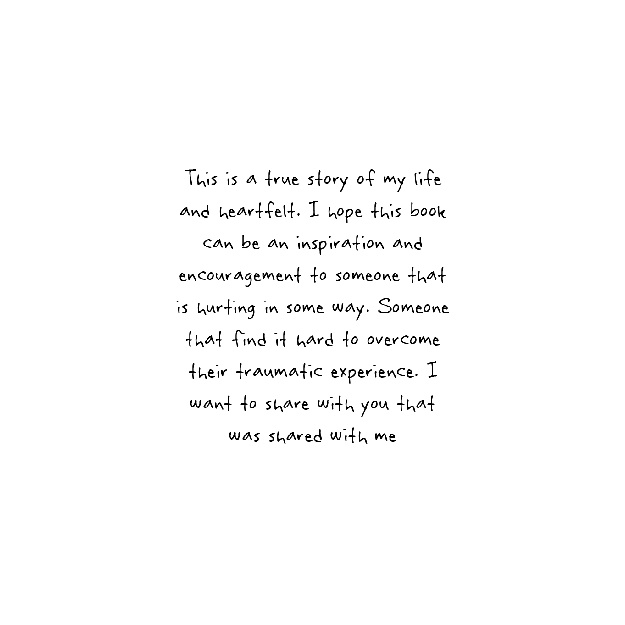 This is a true story of my life
and heartfelt. I hope this book
can be an inspiration and
encouragement to someone that
is hurting in some way. Someone
that find it hard to overcome
their traumatic experience. I
want to share with you that
was shared with me